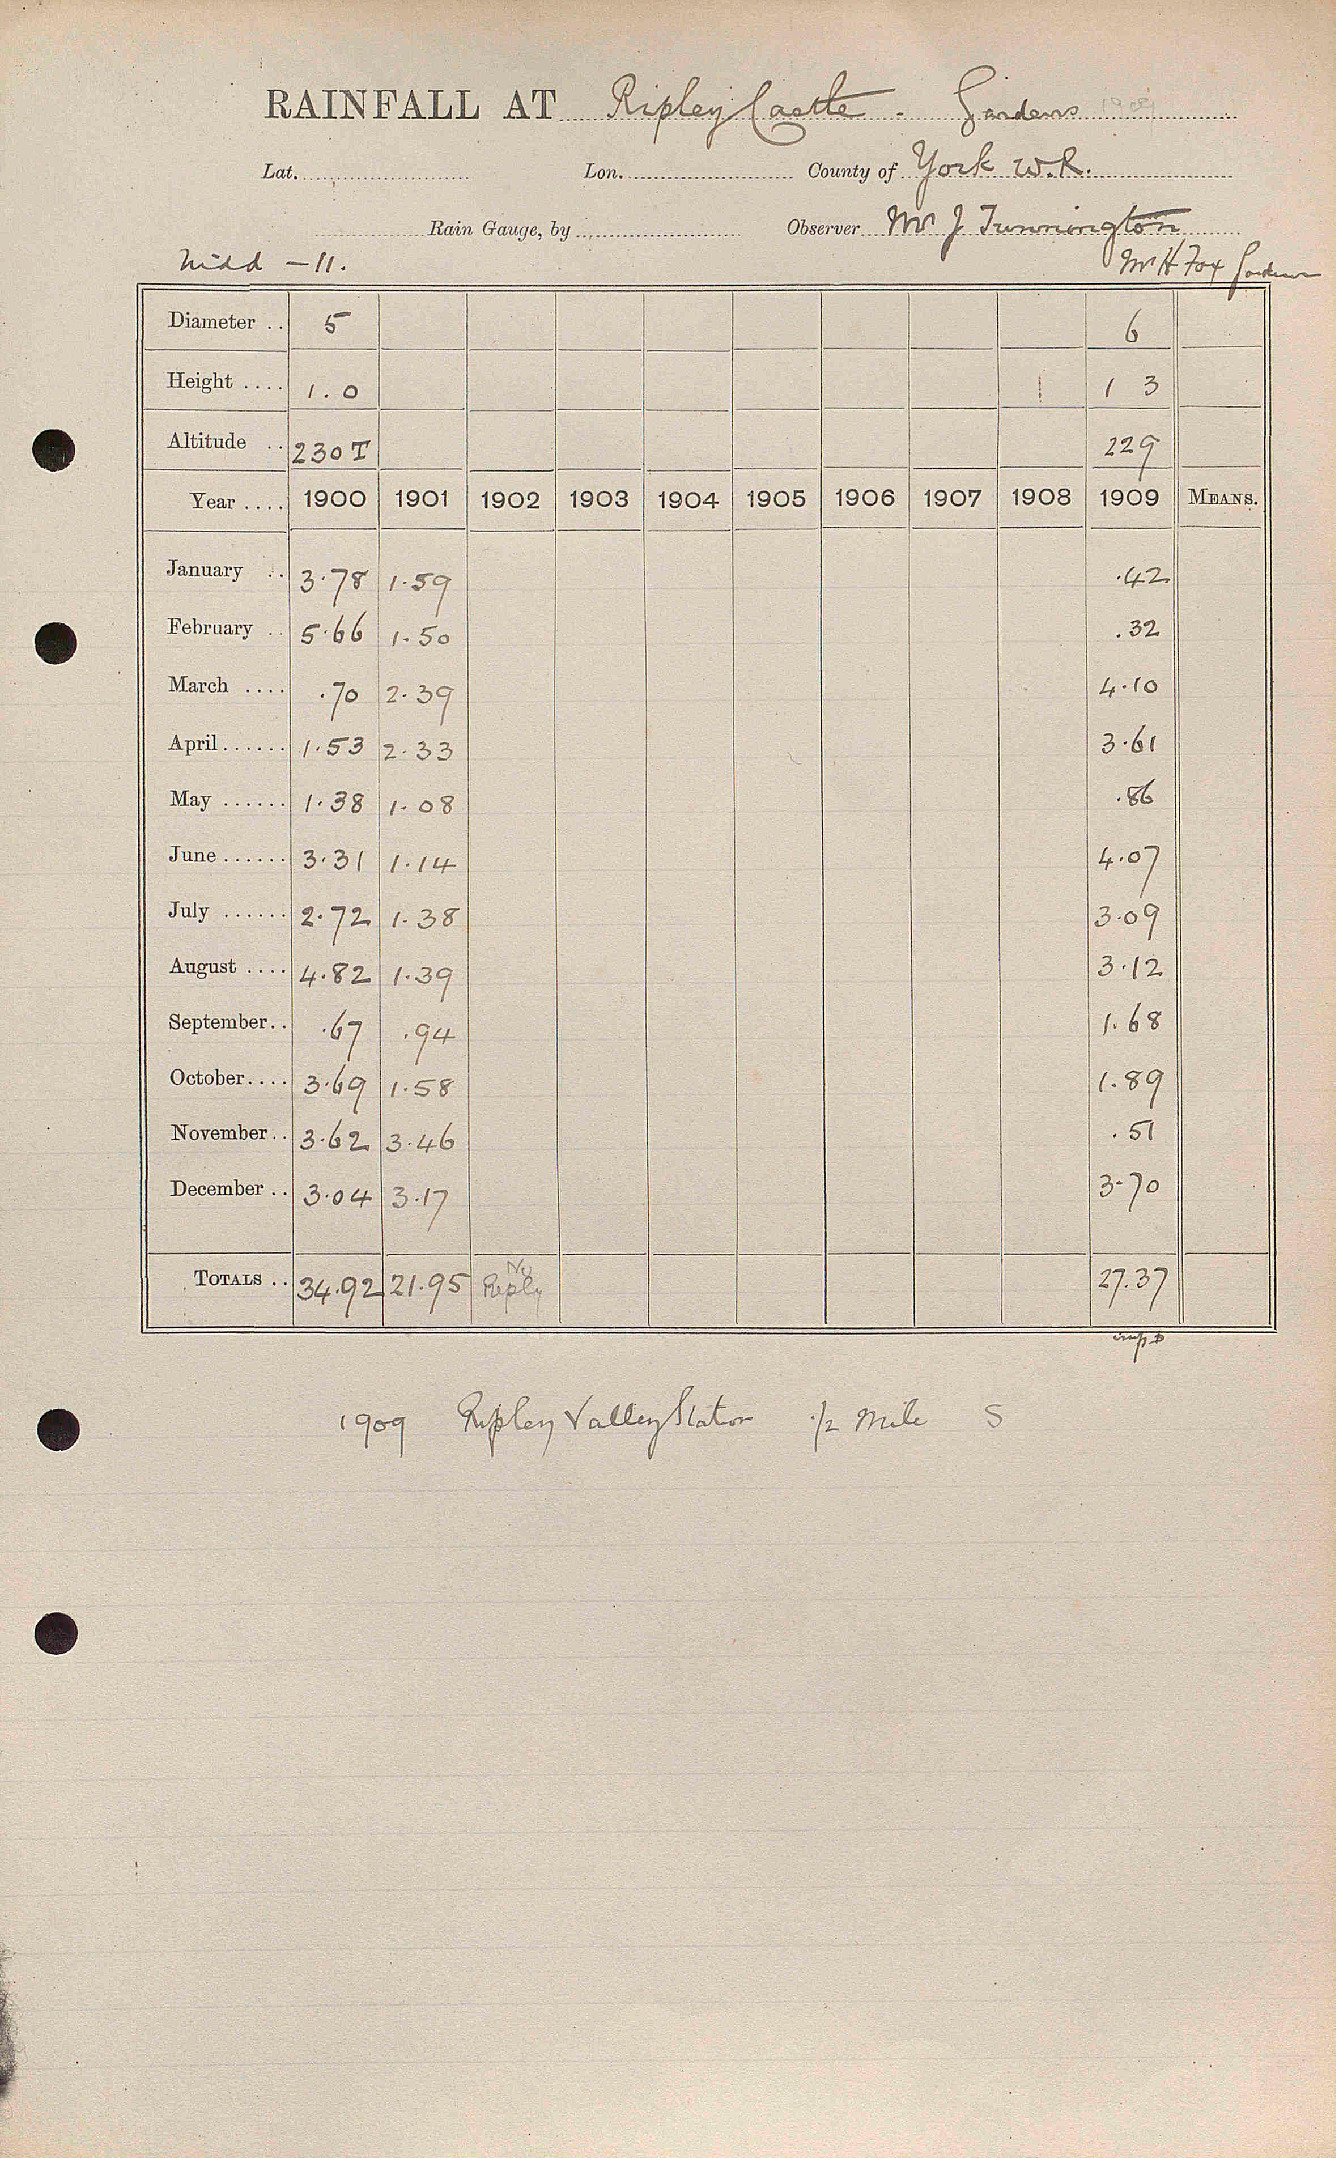 RAINFALL AT Ripley Castle. Gardens 1909
Lat. Lon. County of York W.R.
Rain Gauge, by Observer Mr J Tunnington
Nidd - 11. Mr H Fox Gardener
Diameter .. 5 6
Height .... 1.0 1 3
Altitude .. 230 T 229
Year .... 1900 1901 1902 1903 1904 1905 1906 1907 1908 1909 MEANS.
January .. 3.78 1.59 .42
February .. 5.66 1.50 .32
March .... .70 2.39 4.10
April...... 1.53 2.33 3.61
May ...... 1.38 1.08 .86
June...... 3.31 1.14 4.07
July ...... 2.72 1.38 3.09
August .... 4.82 1.39 3.12
September.. .67 .94 1.68
October.... 3.69 1.58 1.89
November.. 3.62 3.46 .51
December .. 3.04 3.17 3.70
TOTALS .. 34.92 21.95 No Reply 27.37
1909 Ripley Valley Station 1/2 Mile S